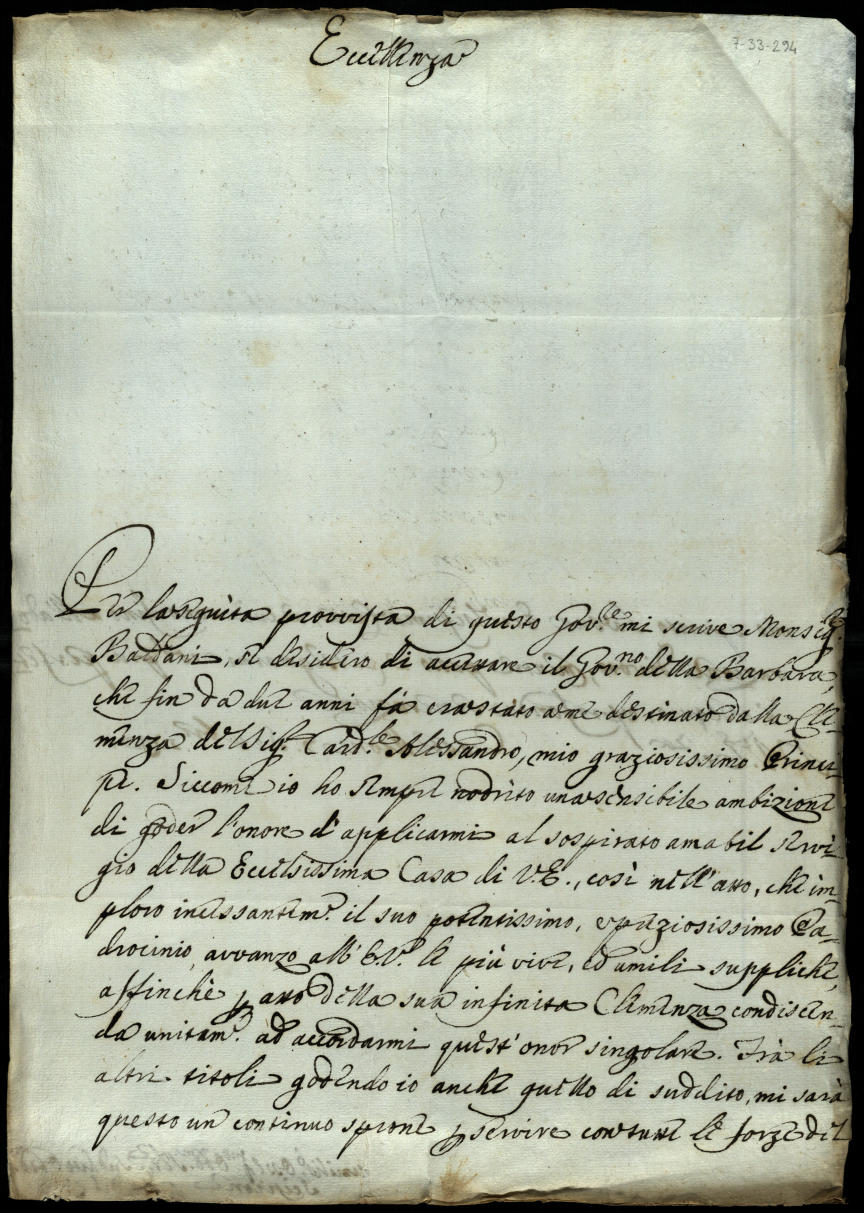 7-33-294
Eccellenza
Per la seguita provvista di questo Gov.re mi scrive Monsig.r
Baldani, se desidero di accettare il Gov.no della Barbara,
che fin da due anni fà era stato a me destinato dalla Cle-
menza del Sig.r Card.le Alessandro, mio graziosissimo Princi-
pe. Siccome io ho sempre nodrito una sensibile ambizione
di goder l'onore d'applicarmi al sospirato amabil servi-
gio della Eccelsissima Casa di V.E., così nell'atto, che im-
ploro incessantem.e il suo potentissimo, e preziosissimo Pa-
drocinio, avvanzo all'E.V. le più vive, ed umili suppliche,
affinchè p atto della sua infinita Clemenza condiscen-
da unitam.e ad accordarmi quest'onor singolare. Frà li
altri titoli godendo io anche quello di suddito, mi sarà
questo un continuo sprone p servire con tutte le forze del